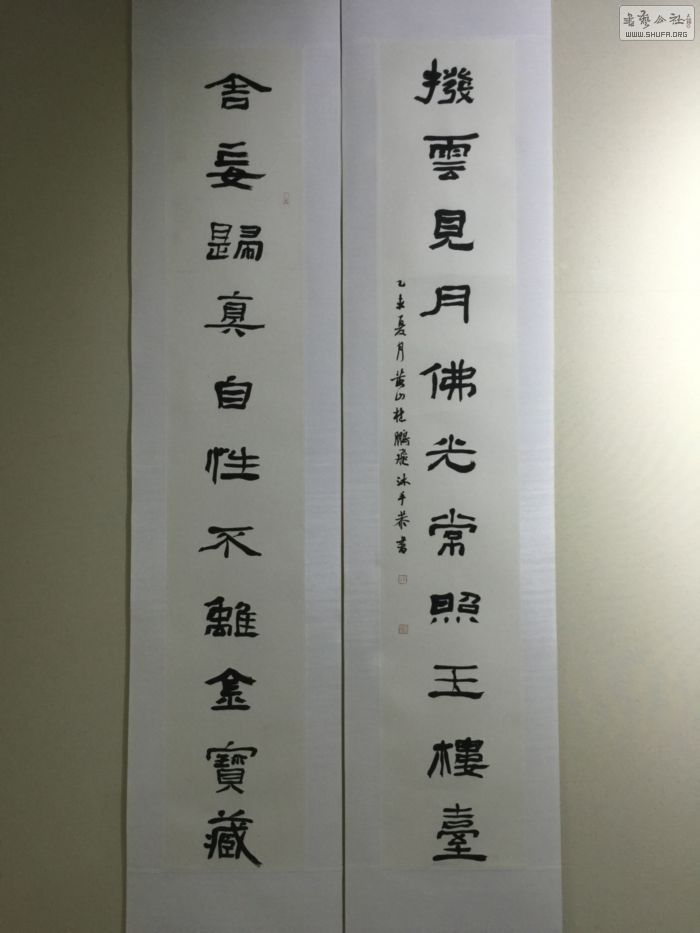 舍妄歸真自性不離金寶藏
撥雲見月佛光常照玉樓臺
乙未夏月黃山桂鵬飛沐手恭書
書藝公社
WWW.SHUFA.ORG